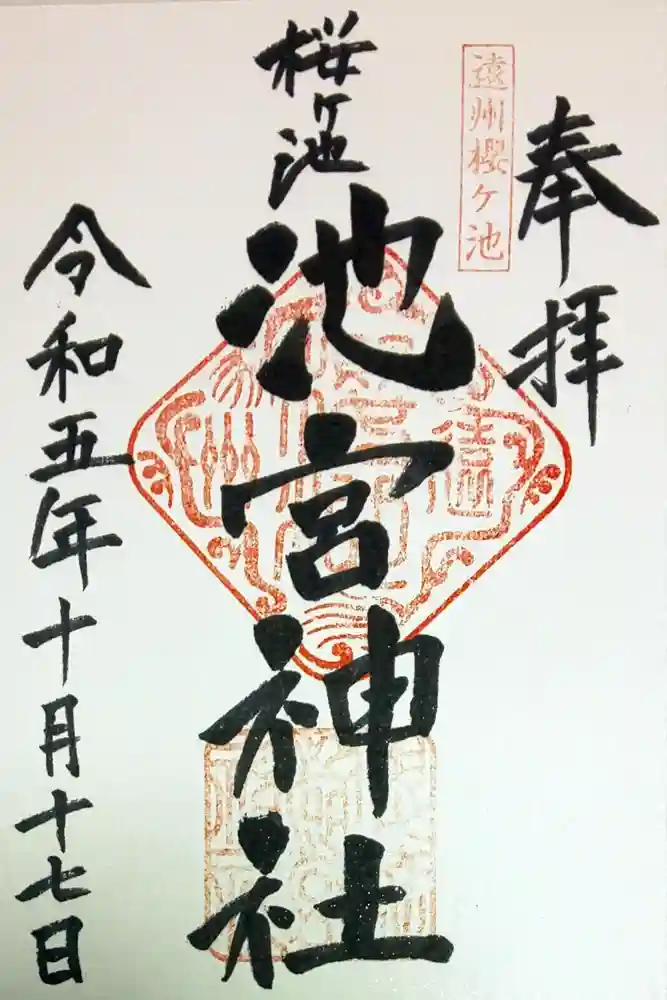 奉拝
遠州櫻ケ池
桜ヶ池
池宮神社
令和五年十月十七日